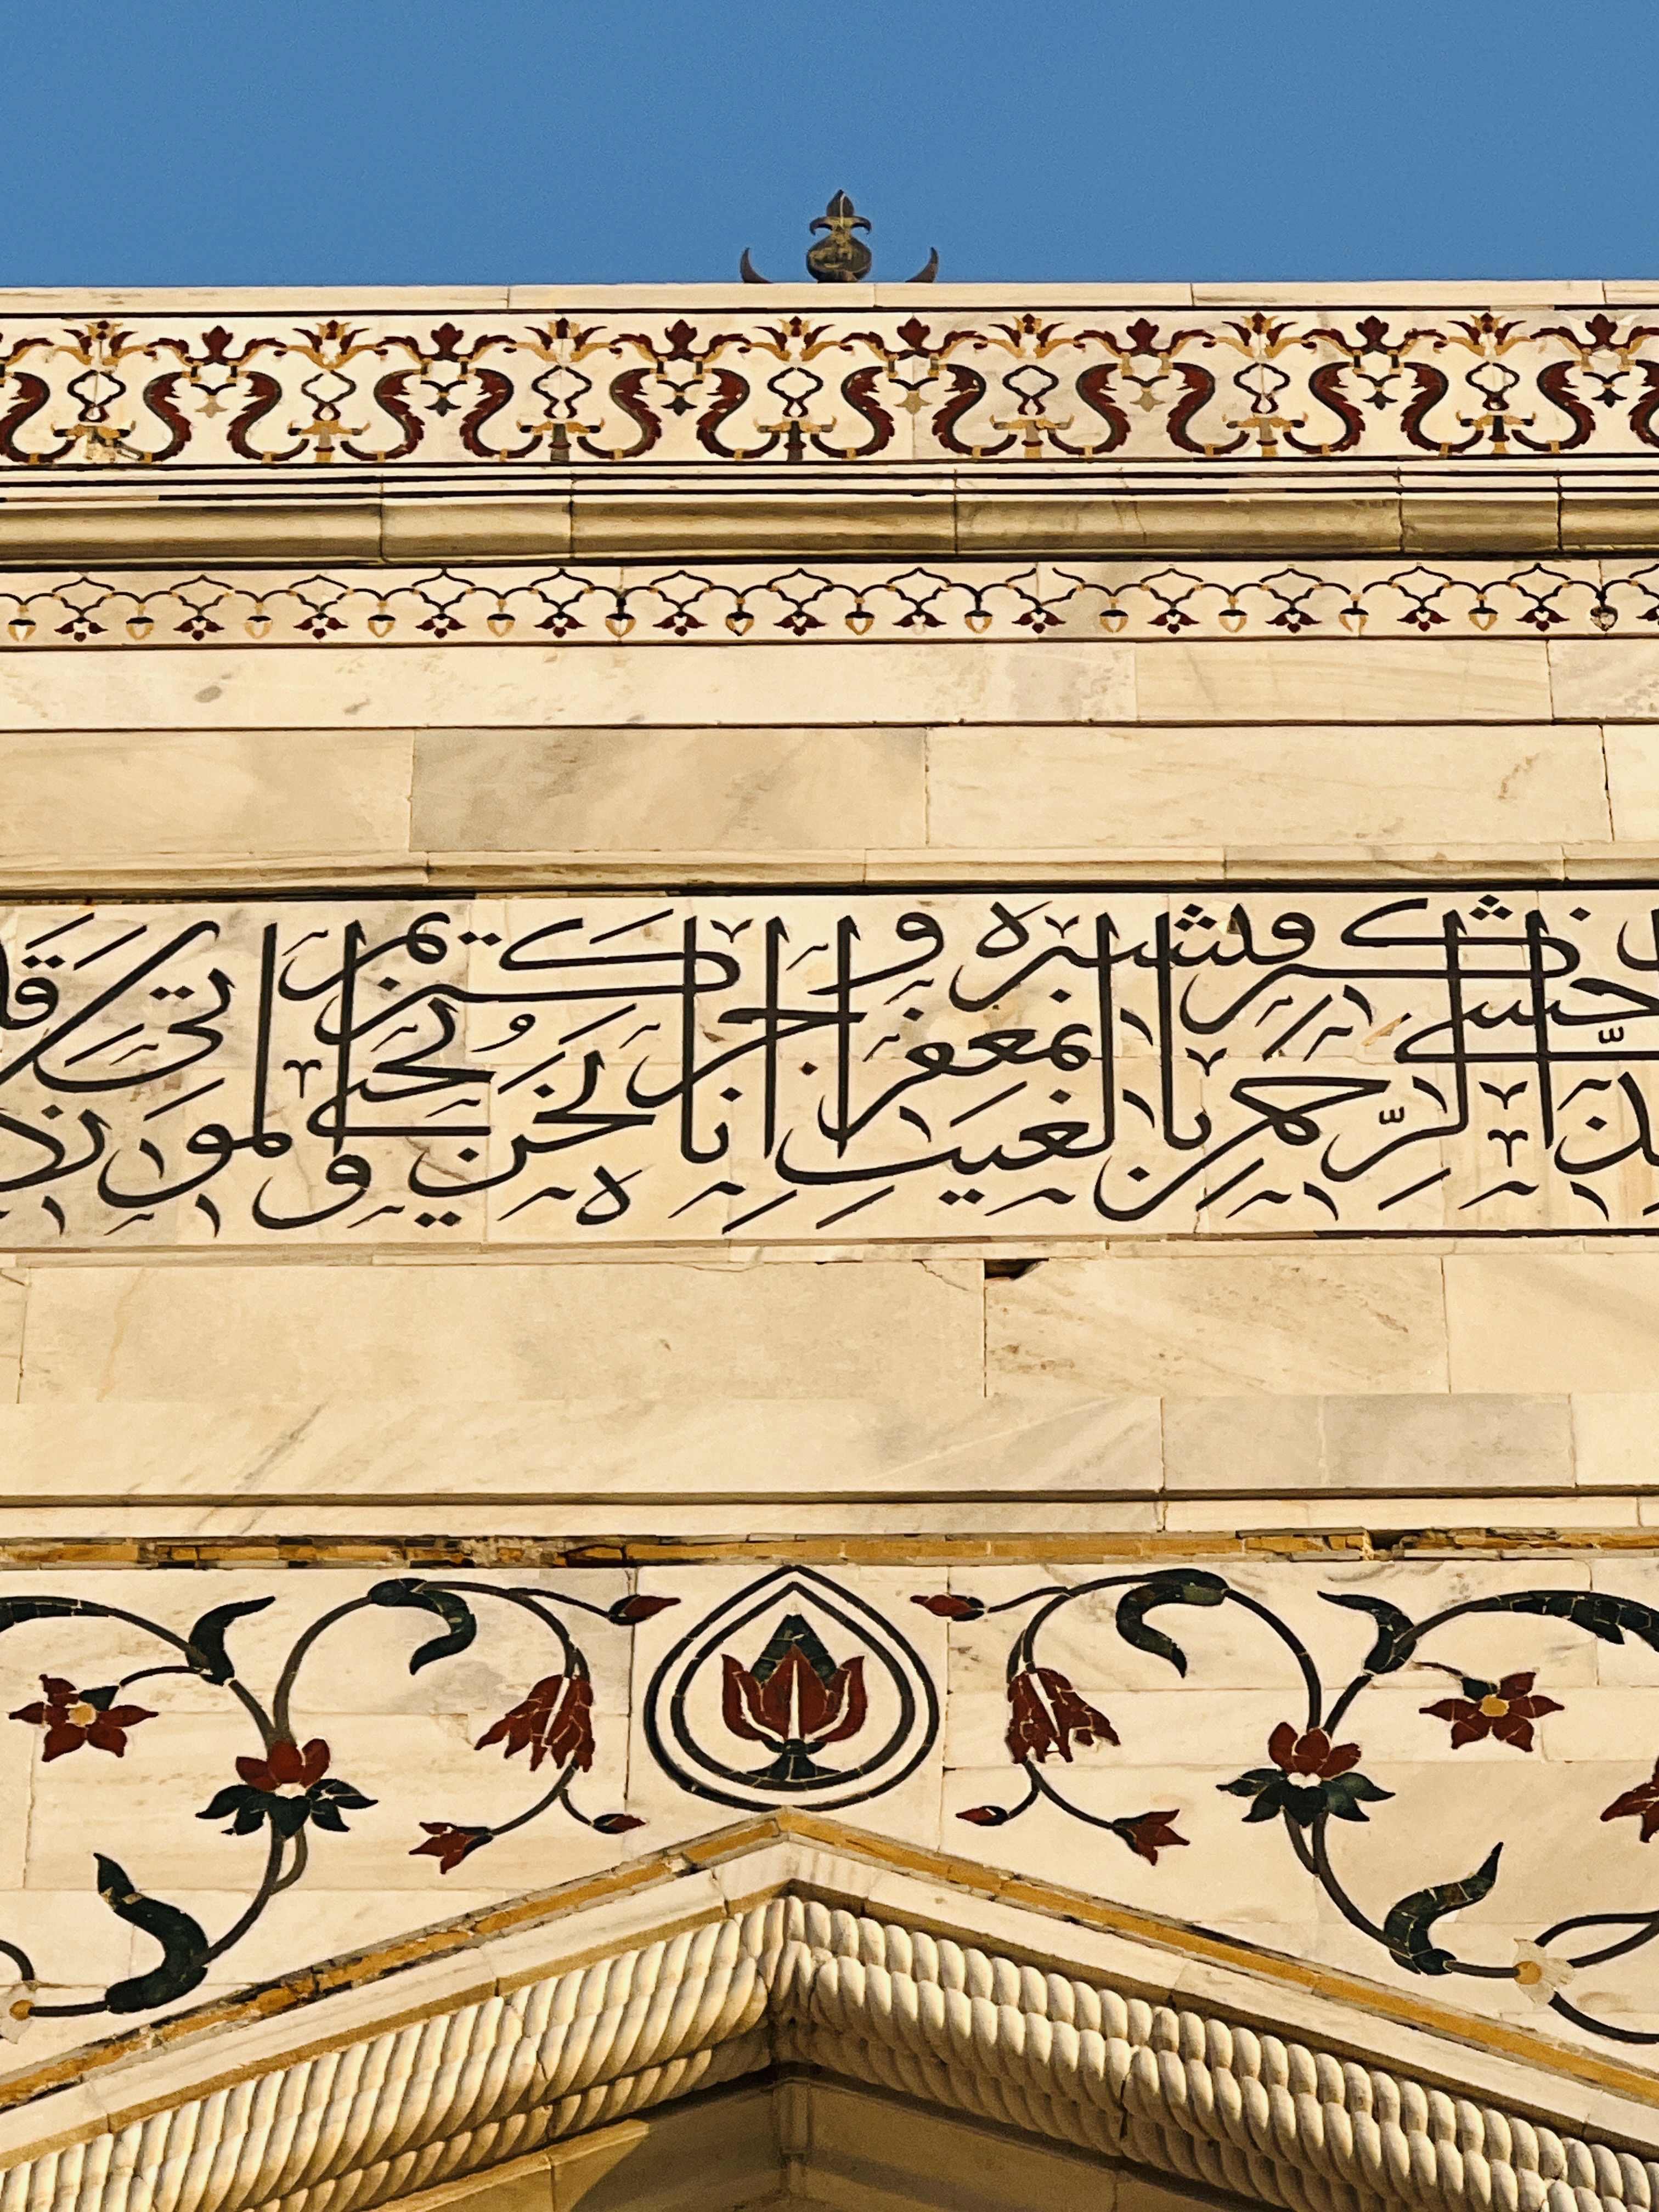 وخشي الرحمن بالغيب فبشره بمغفرة وأجر كريم إنا نحن نحيي الموتى ونكتب